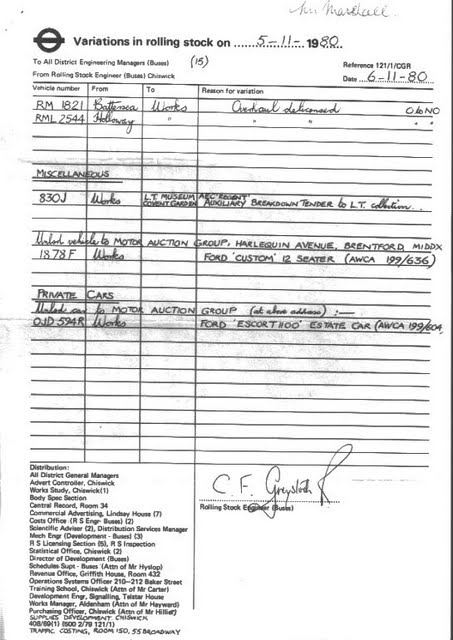 Mr Marshall.
Variations in rolling stock on 5-11-1980
To All District Engineering Managers (Buses) (15) Reference 121/1/CGR
From Rolling Stock Engineer (Buses) Chiswick Date 6-11-80
Vehicle number From To Reason for variation
RM 1821 Battersea Works Overhaul delicensed O/b NO
RML 2544 Holloway " " " " "
MISCELLANEOUS
830J Works L.T. MUSEUM COVENT GARDEN AEC 'REGENT' AUXILIARY BREAKDOWN TENDER to L.T. collection.
vehicle to MOTOR AUCTION GROUP, HARLEQUIN AVENUE, BRENTFORD, MIDDX
1878F Works FORD 'CUSTOM' 12 SEATER (AWCA 199/636)
PRIVATE CARS
car to MOTOR AUCTION GROUP (at above address) :—
OJD 594R Works FORD 'ESCORT 1100' ESTATE CAR (AWCA 199/604
Distribution:
All District General Managers
Advert Controller, Chiswick
Works Study, Chiswick(1)
Body Spec Section
Central Record, Room 34
Commercial Advertising, Lindsay House (7)
Costs Office (R S Engr- Buses) (2)
Scientific Adviser (2), Distribution Services Manager
Mech Engr (Development - Buses) (3)
R S Licensing Section (5), R S Inspection
Statistical Office, Chiswick (2)
Director of Development (Buses)
Schedules Supt - Buses (Attn of Mr Hyslop)
Revenue Office, Griffith House, Room 432
Operations Systems Officer 210–212 Baker Street
Training School, Chiswick (Attn of Mr Carter)
Development Engr, Signalling, Telstar House
Works Manager, Aldenham (Attn of Mr Hayward)
Purchasing Officer, Chiswick (Attn of Mr Hillier)
SUPPLIES DEVELOPMENT CHISWICK
408/69(1) (800 2/79 121/1)
TRAFFIC COSTING, ROOM 150, 55 BROADWAY
C. F.
Rolling Stock Engineer (Buses)